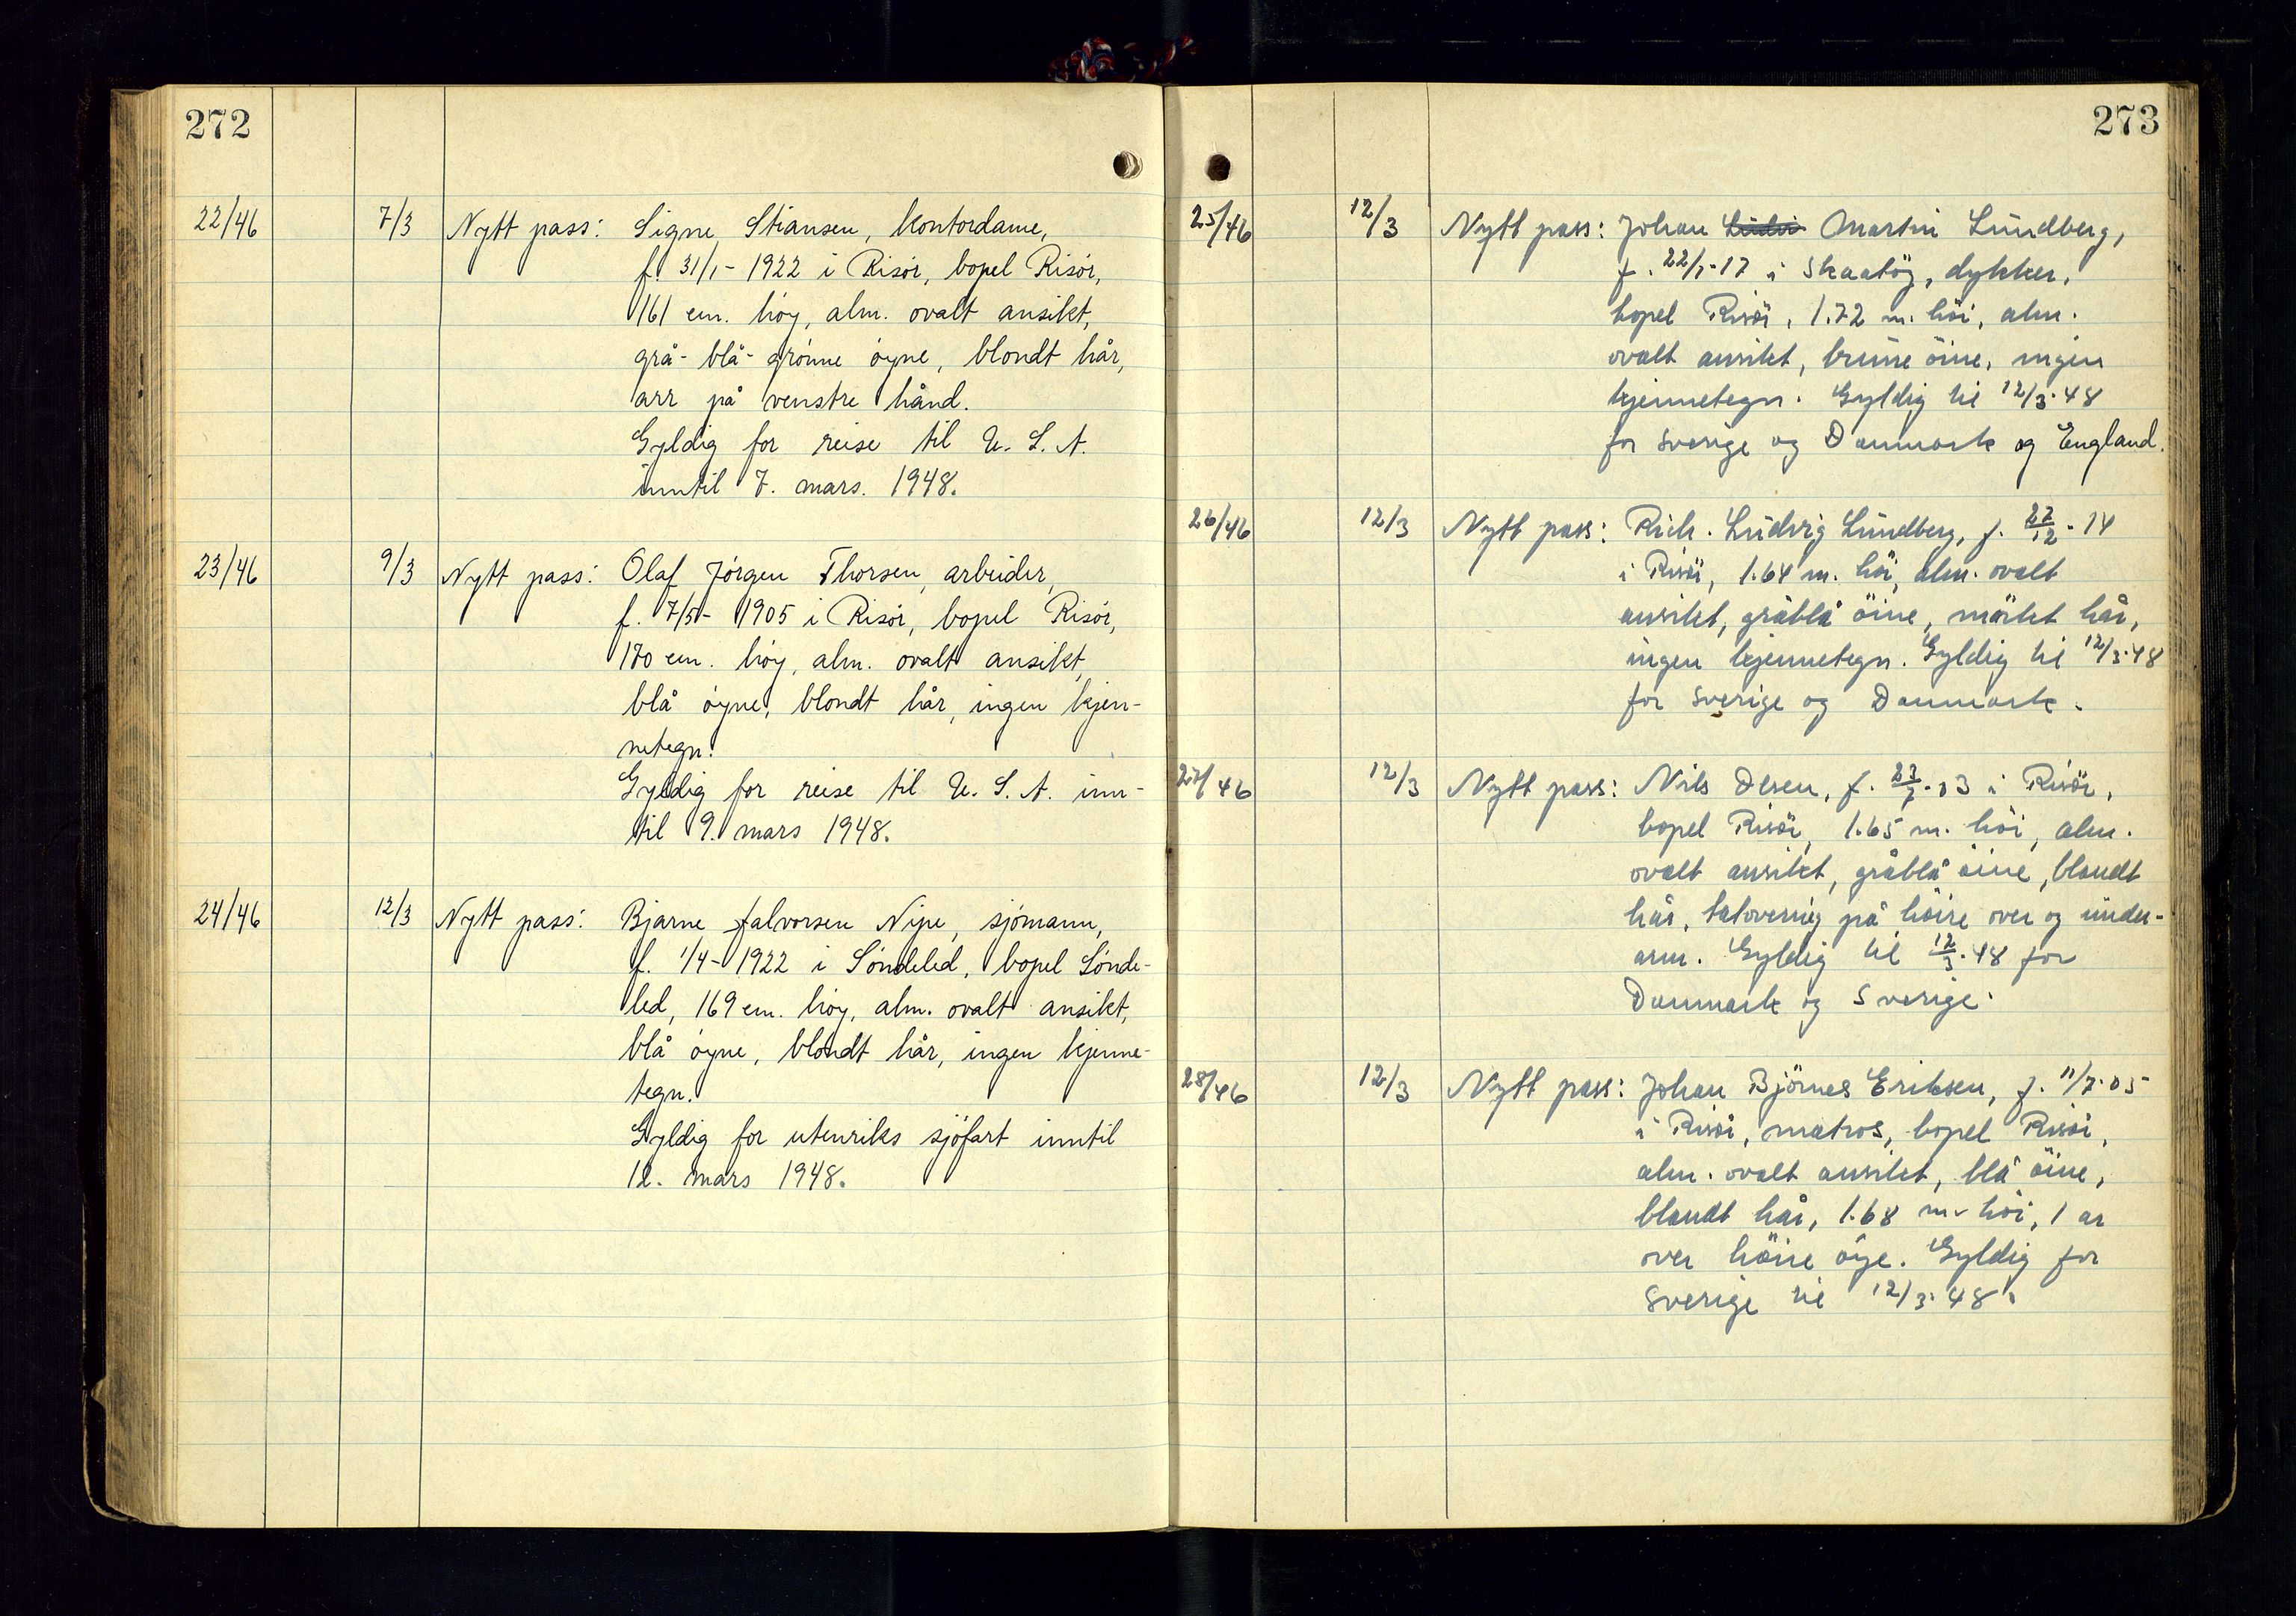 272
22/46 7/3 Nytt pass: Signe Stiansen, kontordame,
f. 31/1 - 1922 i Risör, bopel Risör,
161 cm. höy, alm. ovalt ansikt,
grå-blå-grönne öyne, blondt hår,
arr på venstre hånd.
Gyldig for reise til U.S.A.
inntil 7. mars. 1948.
23/46 9/3 Nytt pass: Olaf Jörgen Thorsen, arbeider,
f. 7/5 - 1905 i Risör, bopel Risör,
170 cm. höy, alm. ovalt ansikt,
blå öyne, blondt hår, ingen kjen-
netegn.
Gyldig for reise til U.S.A. inn-
til 9. mars 1948.
24/46 12/3 Nytt pass: Bjarne Halvorsen Nipe, sjömann,
f. 1/4 - 1922 i Söndeled, bopel Sönde-
led, 169 cm. höy, alm. ovalt ansikt,
blå öyne, blondt hår, ingen kjenne-
tegn.
Gyldig for utenriks sjöfart inntil
12. mars 1948.
273
25/46 12/3 Nytt pass: Johan Martin Lundberg,
f. 22/1-17 i Skaatöy, dykker,
bopel Risör, 1.72 m. höi, alm.
ovalt ansikt, brune öine, ingen
kjennetegn. Gyldig til 12/3-48
for Sverige og Danmark og England.
26/46 12/3 Nytt pass: Rich. Ludvig Lundberg, f. 27/12-14
i Risör, 1.64 m. höi, alm. ovalt
ansikt, gråblå öine, mörket hår,
ingen kjennetegn. Gyldig til 12/3-48
for Sverige og Danmark.
27/46 12/3 Nytt pass: Nils Olsen, f. 23/7-03 i Risör,
bopel Risör, 1.65 m. höi, alm.
ovalt ansikt, gråblå öine, blondt
hår, tatovering på höire over og under-
arm. Gyldig til 12/3-48 for
Danmark og Sverige.
28/46 12/3 Nytt pass: Johan Björnes Eriksen, f. 11/7-05
i Risör, matros, bopel Risör,
alm. ovalt ansikt, blå öine,
blondt hår, 1.68 m. höi, 1 ar
over höire öye. Gyldig for
Sverige til 12/3-48.